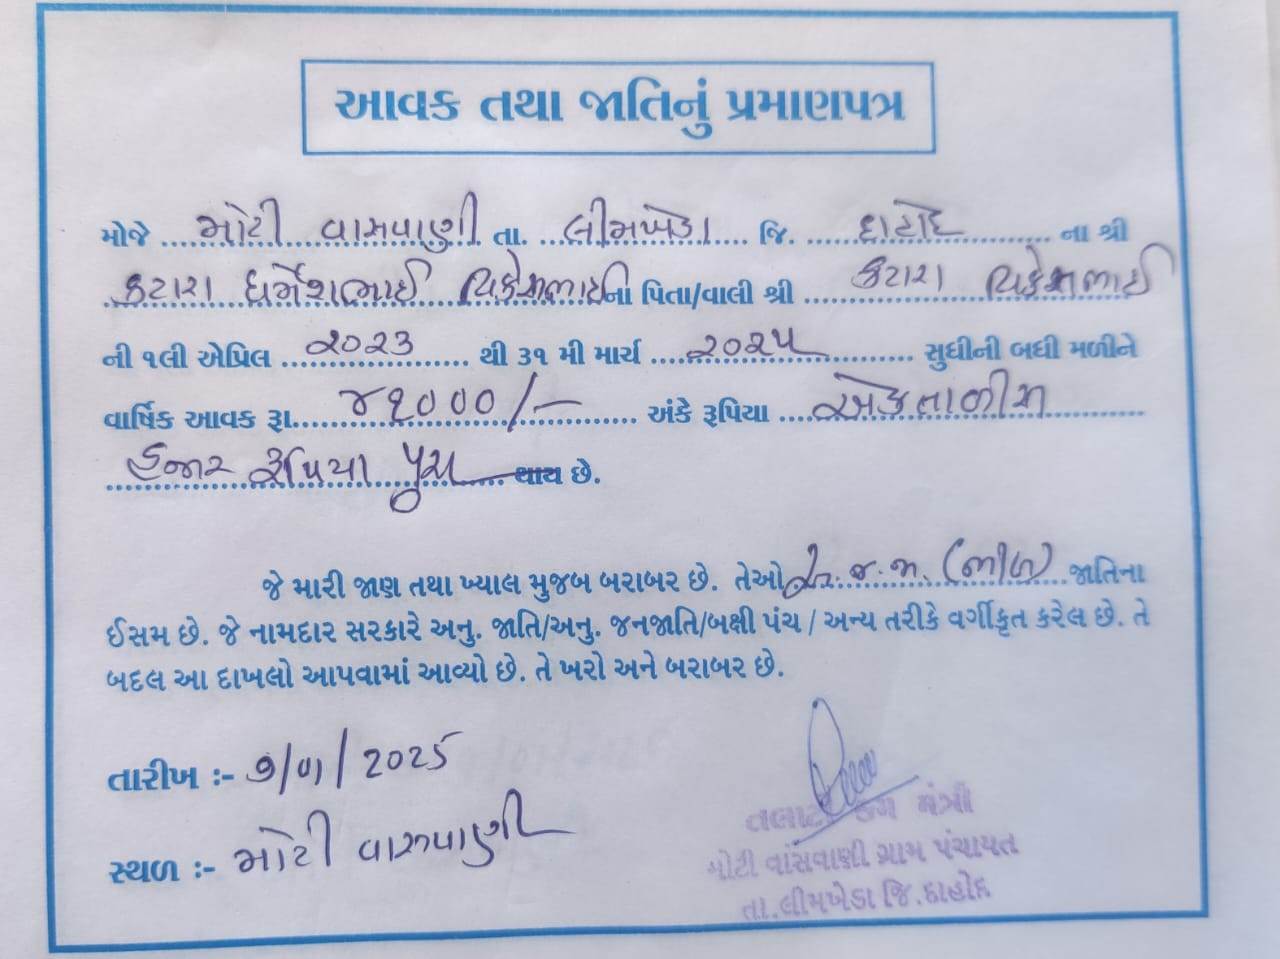 આવક તથા જાતિનું પ્રમાણપત્ર
મોજે મોટી વાસવાણી તા. લીમખેડા જિ. દાહોદ ના શ્રી
કટારા ધર્મેશભાઈ ના પિતા/વાલી શ્રી કટારા
ની ૧લી એપ્રિલ ૨૦૨૩ થી ૩૧ મી માર્ચ ૨૦૨૫ સુધીની બધી મળીને
વાર્ષિક આવક રૂા. ૪૧૦૦૦/- અંકે રૂપિયા એકતાળીસ
હજાર રૂપિયા પુરા થાય છે.
જે મારી જાણ તથા ખ્યાલ મુજબ બરાબર છે. તેઓ (ભીલ) જાતિના
ઈસમ છે. જે નામદાર સરકારે અનુ. જાતિ/અનુ. જનજાતિ/બક્ષી પંચ / અન્ય તરીકે વર્ગીકૃત કરેલ છે. તે
બદલ આ દાખલો આપવામાં આવ્યો છે. તે ખરો અને બરાબર છે.
તારીખ :- /2025
સ્થળ :- મોટી વાસવાણી
તલાટી કમ મંત્રી
મોટી વાંસવાણી ગ્રામ પંચાયત
તા.લીમખેડા જિ.દાહોદ